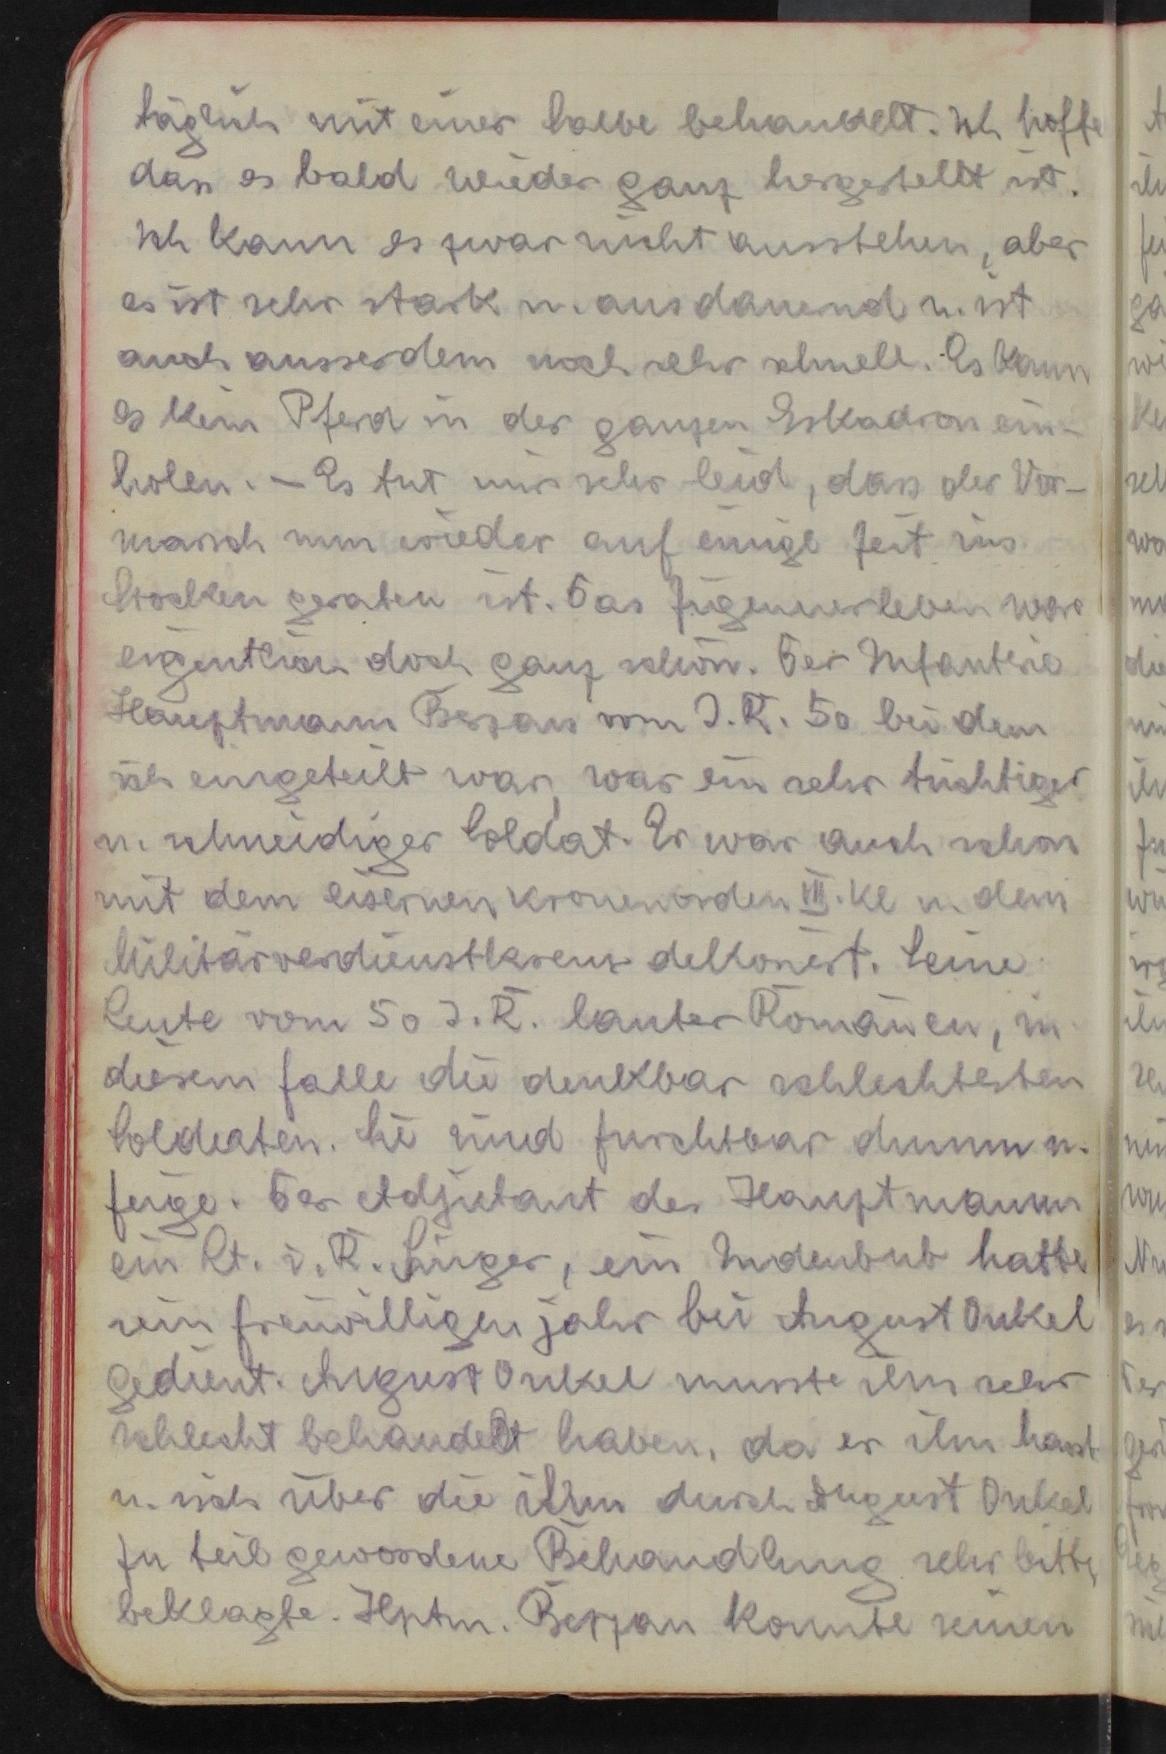 täglich mit einer Salbe behandelt. Ich hoffe
dass es bald wieder ganz hergestellt ist.
Ich kann es zwar nicht ausstehen, aber
es ist sehr stark u. ausdauernd u. ist
auch ausserdem noch sehr schnell. Es kann
es kein Pferd in der ganzen Eskadron ein-
holen. – Es tut mir sehr leid, dass der Vor-
marsch nun wieder auf einige Zeit ins
Stocken geraten ist. Das Zigeunerleben war
eigentlich doch ganz schön. Der Infantrie
Hauptmann Berzan vom I.R. 50 bei dem
ich eingeteilt war, war ein sehr tüchtiger
u. schneidiger Soldat. Er war auch schon
mit dem eisernen Kronenorden III. Kl u. dem
Militärverdienstkreuz dekoriert. Seine
Leute vom 50 I.R. lauter Romänen, in
diesem falle die denkbar schlechtesten
Soldaten. Sie sind furchtbar dumm u.
feige. Der Adjutant des Hauptmanns
ein Lt. i. R. Singer, ein Judenbub hatte
sein freiwilligenjahr bei August Onkel
gedient. August Onkel musste ihm sehr
schlecht behandelt haben, da er ihm hasst
u. sich über die ihm durch August Onkel
zu teil gewordene Behandlung sehr bitter
beklagte. Hptm. Berzan konnte seinen